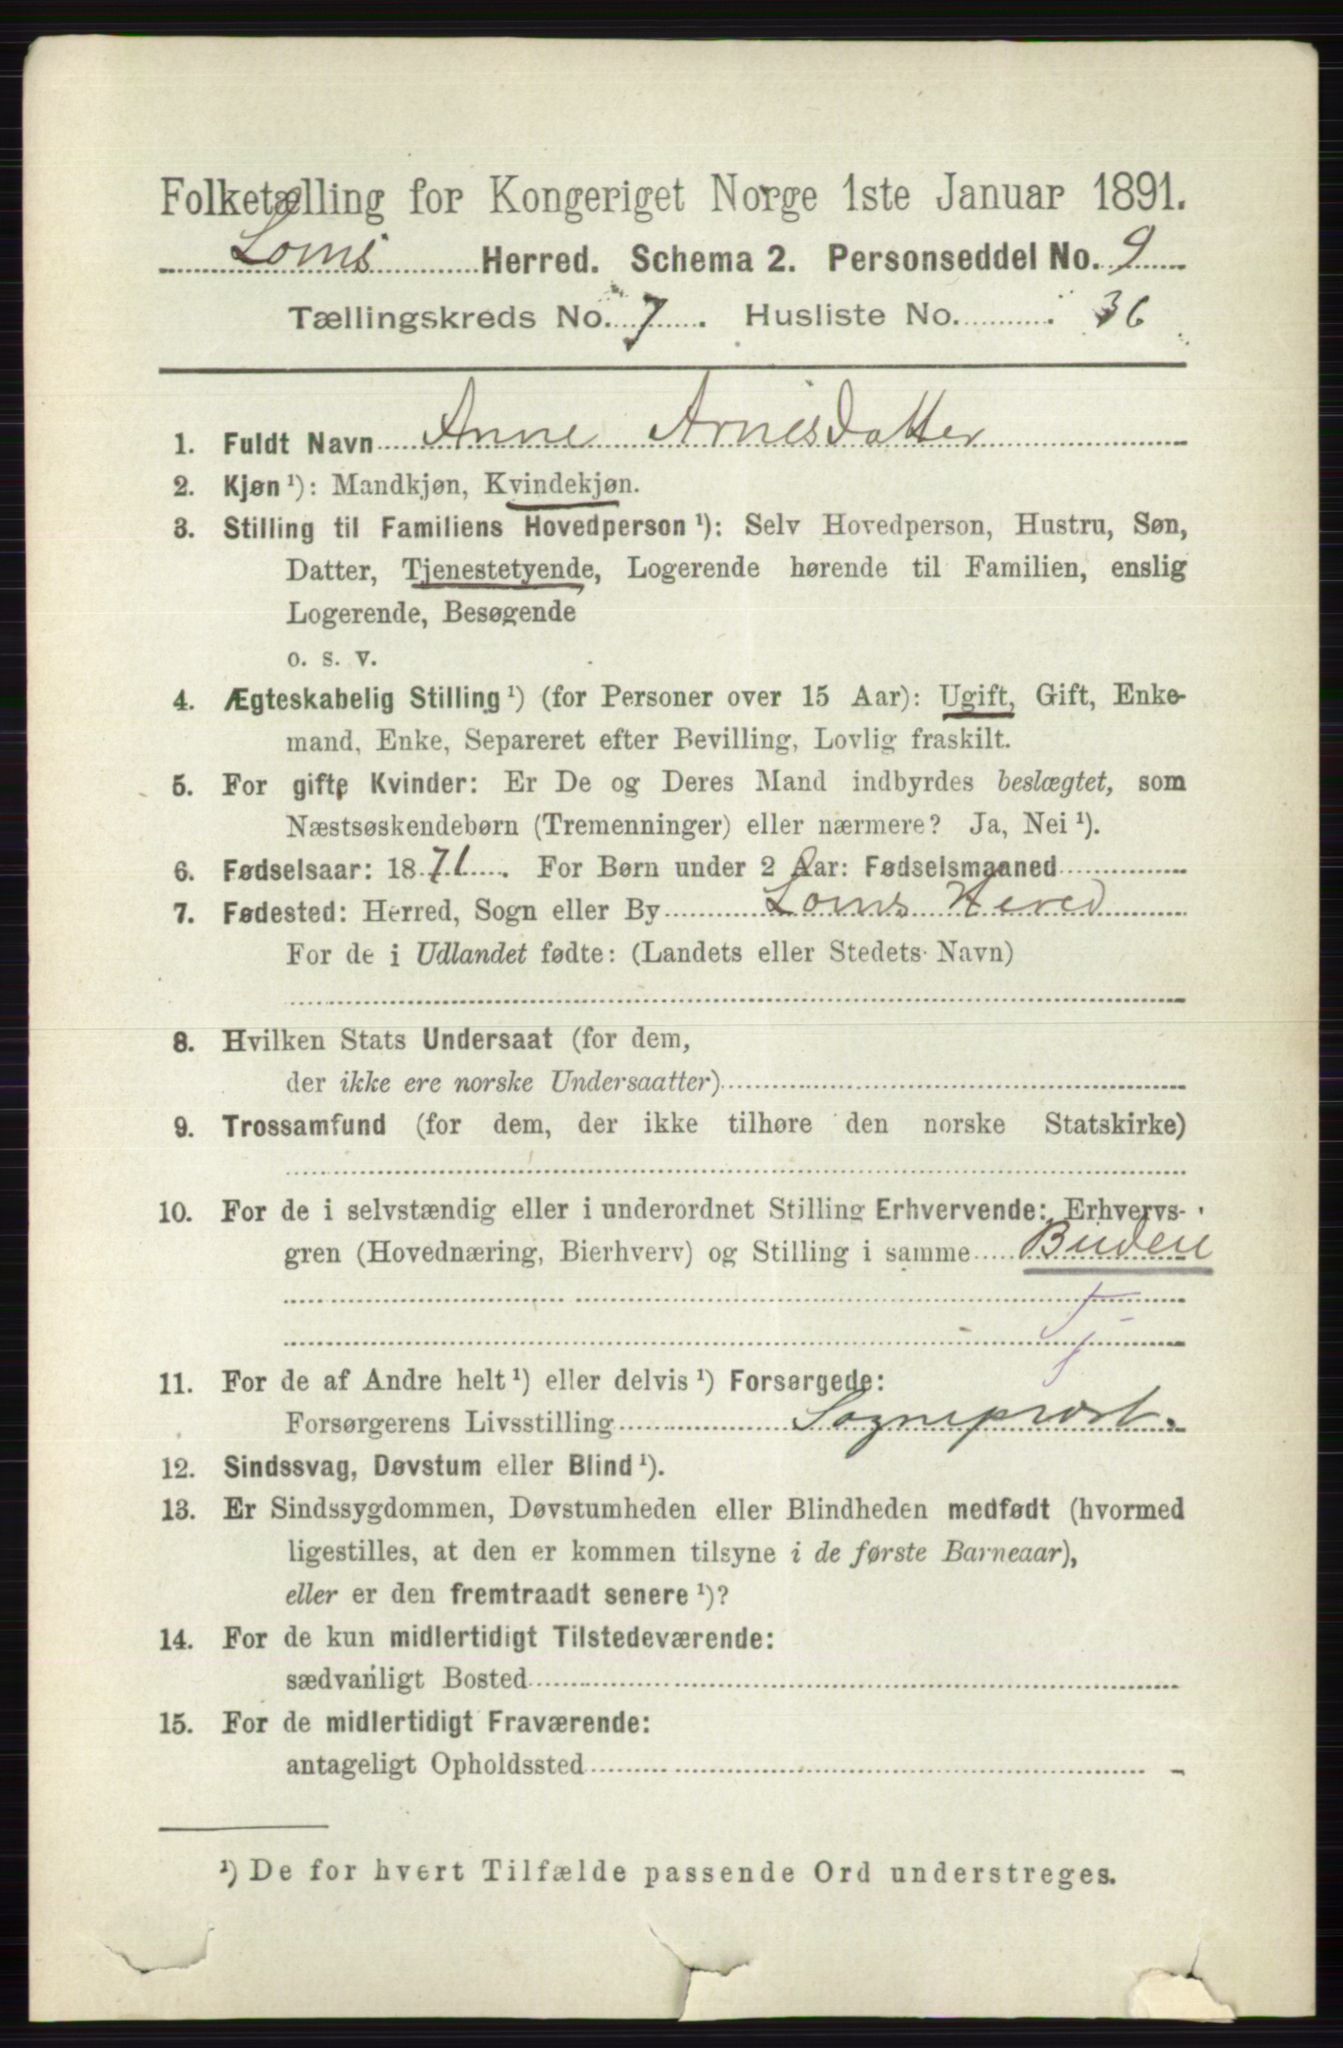 Folketælling for Kongeriget Norge 1ste Januar 1891.
Loms Herred. Schema 2. Personseddel No. 9
Tællingskreds No. 7. Husliste No. 36
1. Fuldt Navn Anne Arnesdatter
2. Kjøn ¹): Mandkjøn, Kvindekjøn.
3. Stilling til Familiens Hovedperson ¹): Selv Hovedperson, Hustru, Søn,
Datter, Tjenestetyende, Logerende hørende til Familien, enslig
Logerende, Besøgende
o. s. v.
4. Ægteskabelig Stilling ¹) (for Personer over 15 Aar): Ugift, Gift, Enke-
mand, Enke, Separeret efter Bevilling, Lovlig fraskilt.
5. For gifte Kvinder: Er De og Deres Mand indbyrdes beslægtet, som
Næstsøskendebørn (Tremenninger) eller nærmere? Ja, Nei ¹).
6. Fødselsaar: 1871. For Børn under 2 Aar: Fødselsmaaned
7. Fødested: Herred, Sogn eller By Loms Hered
For de i Udlandet fødte: (Landets eller Stedets Navn)
8. Hvilken Stats Undersaat (for dem,
der ikke ere norske Undersaatter)
9. Trossamfund (for dem, der ikke tilhøre den norske Statskirke)
10. For de i selvstændig eller i underordnet Stilling Erhvervende: Erhvervs-
gren (Hovednæring, Bierhverv) og Stilling i samme Budeie
Tj
11. For de af Andre helt ¹) eller delvis ¹) Forsørgede:
Forsørgerens Livsstilling Sogneprest.
12. Sindssvag, Døvstum eller Blind ¹).
13. Er Sindssygdommen, Døvstumheden eller Blindheden medfødt (hvormed
ligestilles, at den er kommen tilsyne i de første Barneaar),
eller er den fremtraadt senere ¹)?
14. For de kun midlertidigt Tilstedeværende:
sædvanligt Bosted
15. For de midlertidigt Fraværende:
antageligt Opholdssted
¹) De for hvert Tilfælde passende Ord understreges.